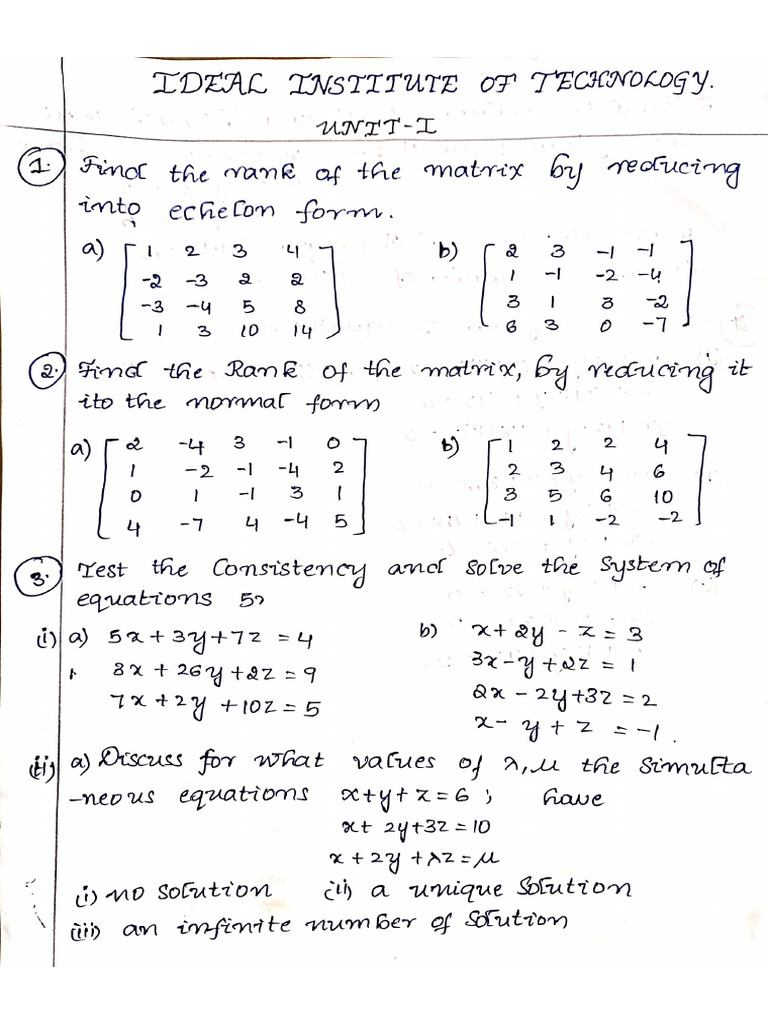 IDEAL INSTITUTE OF TECHNOLOGY.
UNIT-I
1. Find the rank of the matrix by reducing
into echelon form.
a) [ 1 2 3 4
-2 -3 2 2
-3 -4 5 8
1 3 10 14 ]
b) [ 2 3 -1 -1
1 -1 -2 -4
3 1 3 -2
6 3 0 -7 ]
2. Find the Rank of the matrix, by reducing it
ito the normal form
a) [ 2 -4 3 -1 0
1 -2 -1 -4 2
0 1 -1 3 1
4 -7 4 -4 5 ]
b) [ 1 2 2 4
2 3 4 6
3 5 6 10
-1 1 -2 -2 ]
3. Test the Consistency and solve the system of
equations 5,
(i) a) 5x + 3y + 7z = 4
3x + 26y + 2z = 9
7x + 2y + 10z = 5
b) x + 2y - z = 3
3x - y + 2z = 1
2x - 2y + 3z = 2
x - y + z = -1.
(ii) a) Discuss for what values of λ, μ the simulta
-neous equations x+y+z=6 ; have
x+ 2y+3z=10
x + 2y + λz = μ
(i) no solution (ii) a unique solution
(iii) an infinite number of solution